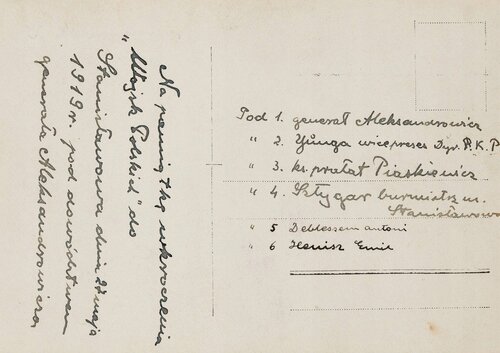 Na pamiątkę wkroczenia
"Wojsk Polskich" do
Stanisławowa dnia 22 maja
1919 r. pod dowództwem
generała Aleksandrowicza,
Pod 1. generał Aleksandrowicz
" 2. Yünga wiceprezes Dyr. P.K.P
" 3. ks. prałat Piaskiewicz
" 4. Sztygar burmistrz m.
Stanisławowa
" 5 Deblessem antoni
" 6 Henisz Emil